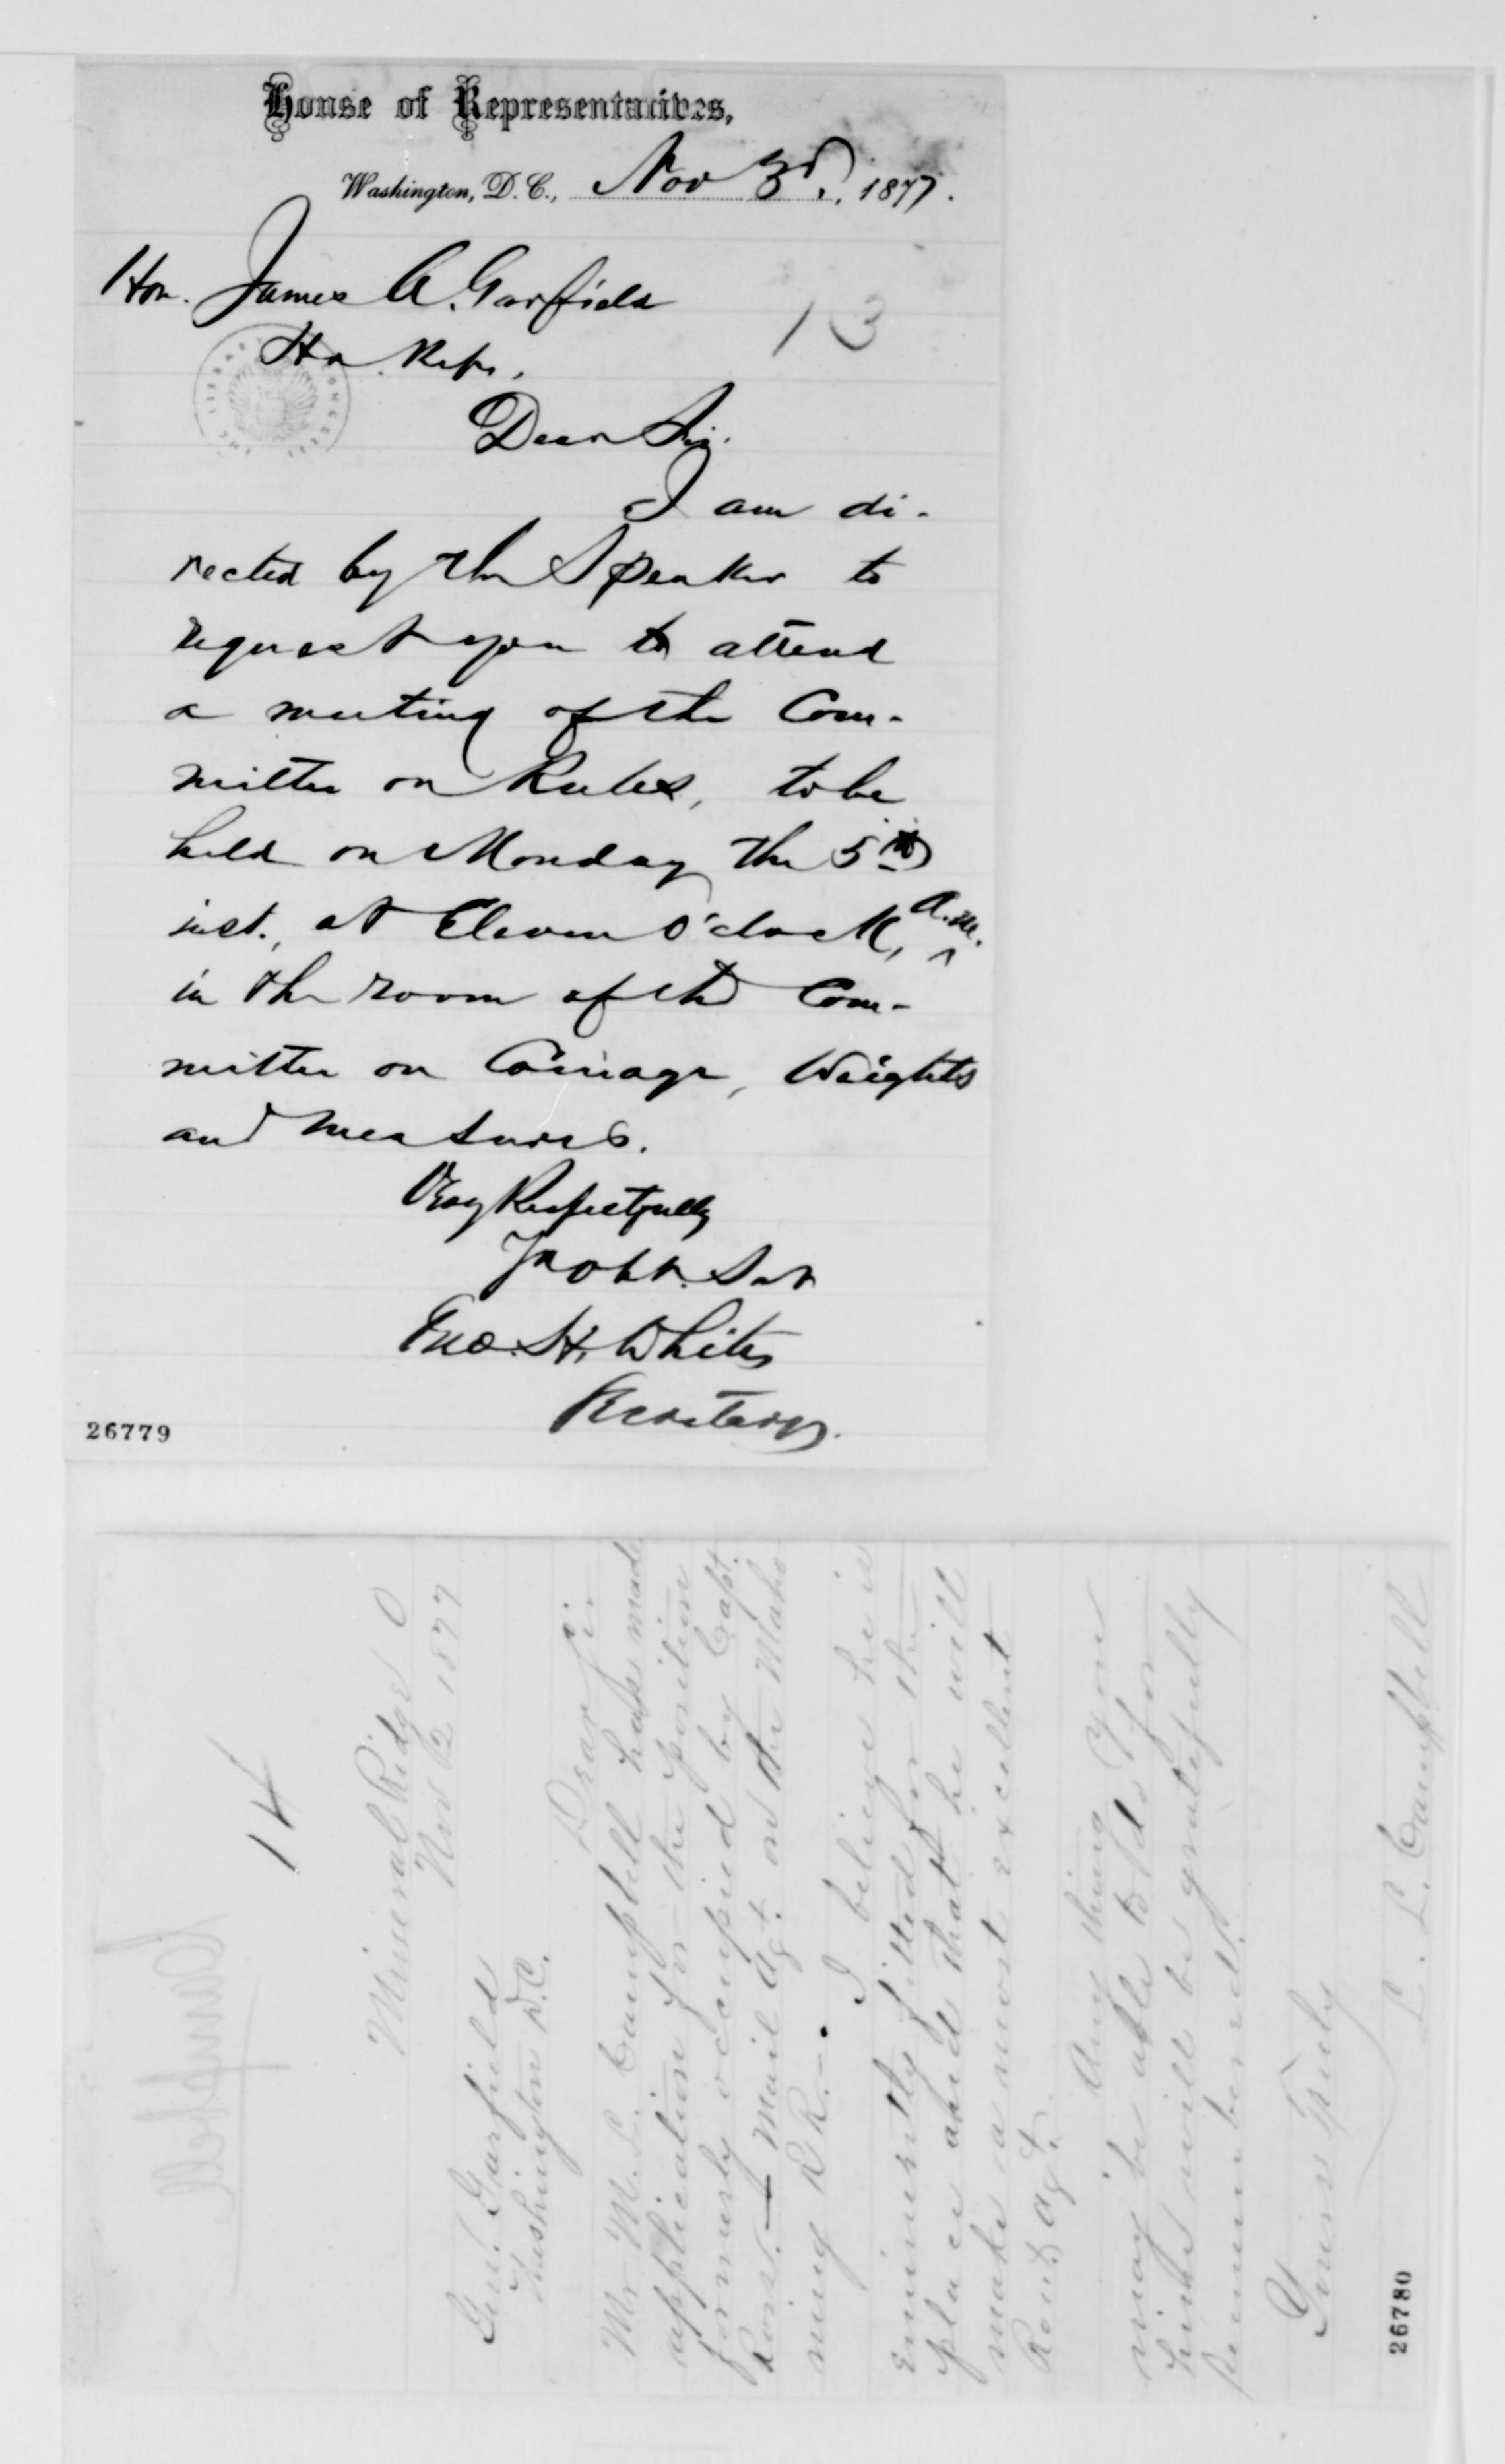 House of Representatives,
Washington, D. C., Nov 3d., 1877.
Hon. James A. Garfield
Ho. Reps.,
13
Dear Sir.
I am di-
rected by the Speaker to
request you to attend
a meeting of the Com-
mittee on Rules, to be
held on Monday the 5th
inst., at Eleven O'clock, a.m.
in the room of the Com-
mittee on Coinage, Weights
and Measures.
Very Respectfully
Your obt. Svt
Jno. H. White
Secretary.
26779
14
Mineral Ridge O
Nov 2 1877
Gen. Garfield
Washington D.C.
Dear Sir
Mr M. L. Campbell has made
application for the position
formerly occupied by Capt.
Ross. — Mail Agt. on the Maho
ning R R. — I believe he is
Eminently fitted for the
place and that he will
make a most excellent
Route Agt.
Any thing you
may be able to do for
him will be gratefully
remembered.
Yours Truly
L. L. Campbell
26780